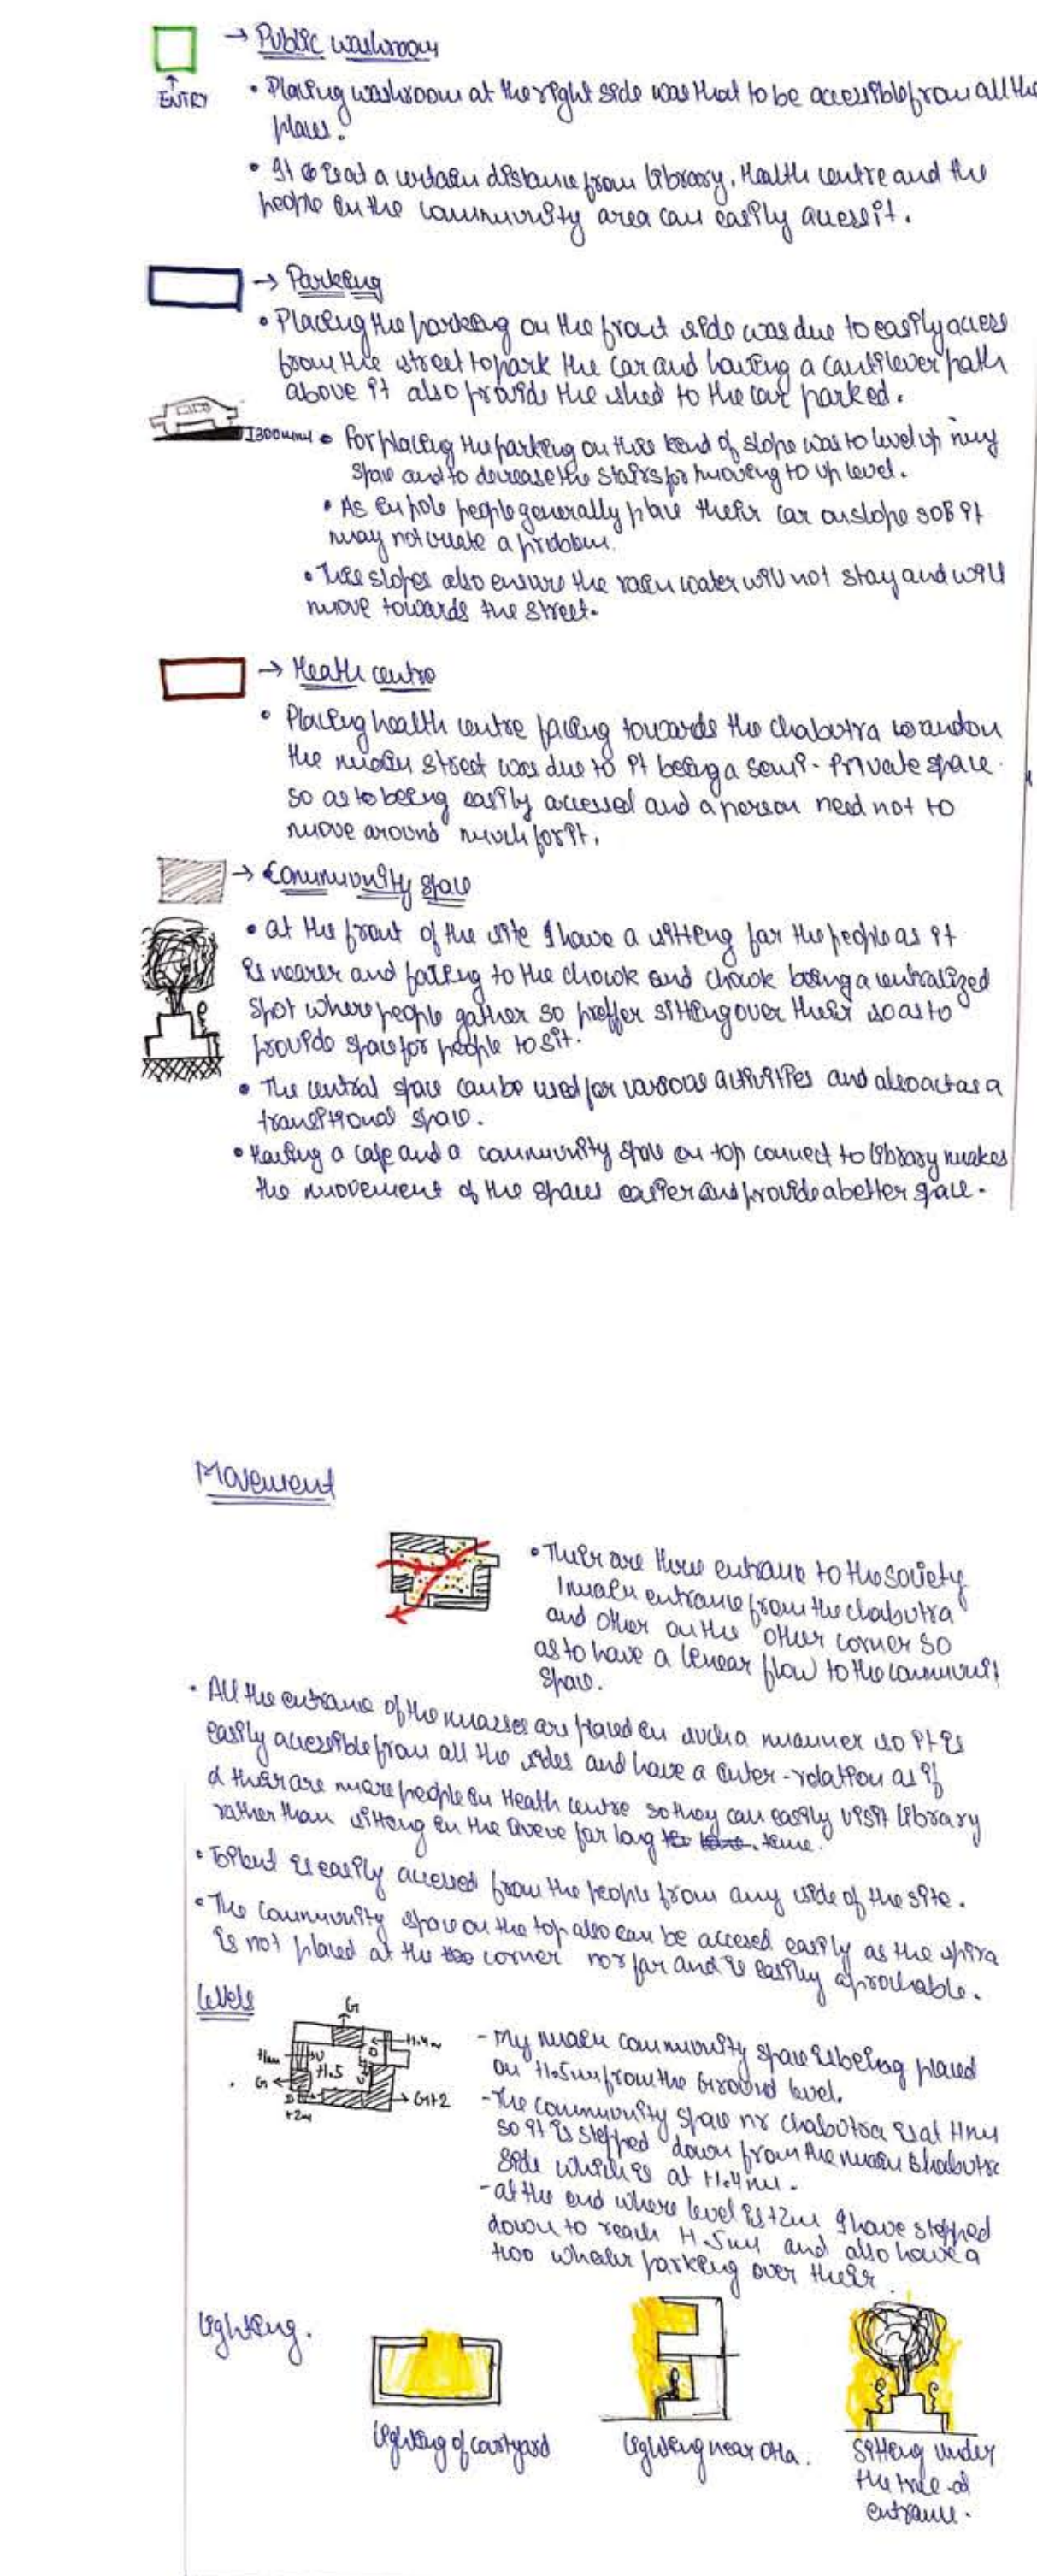 → Public washroom
ENTRY
• Placing washroom at the right side was that to be accessible from all the
places.
• It is at a certain distance from library, Health centre and the
people in the community area can easily access it.
→ Parking
• Placing the parking on the front side was due to easily access
from the street to park the car and having a cantilever path
above it also provide the shed to the car parked.
1300mm • For placing the parking on this kind of slope was to level up my
space and to decrease the stairs for moving to up level.
• As in pole people generally place their car on slope so it
may not create a problem.
• This slopes also ensure the rain water will not stay and will
move towards the street.
→ Heath centre
• Placing health centre facing towards the chabutra and on
the main street was due to it being a semi-private space.
so as to being easily accessed and a person need not to
move around much for it.
→ Community space
• at the front of the site I have a sitting for the people as it
is nearer and facing to the chowk and chowk being a centralized
spot where people gather so preffer sitting over their so as to
provide space for people to sit.
• The central space can be used for various activities and also act as a
transitional space.
• Having a cafe and a community space on top connect to library makes
the movement of the spaces easier and provide a better space.
Movement
• Their are three entrance to the society
1 main entrance from the chabutra
and other on the other corner so
as to have a linear flow to the community
space.
• All the entrance of the masses are placed in such a manner so it is
easily accessible from all the sides and have a inter-relation as if
their are more people in Heath centre so they can easily visit library
rather than sitting in the queue for long time.
• Toilent is easily accessed from the people from any side of the site.
• The community space on the top also can be accesed easily as the
is not placed at the corner nor far and is easily aproachable.
Levels
G
+1.4m
+1m
U
+1.5
G
D
G+2
+2m
- My main community space is being placed
on +1.5m from the Ground level.
- The community space nr chabutra is at +1m
so it is stepped down from the main chabutra
side which is at +1.4m.
- at the end where level is +2m I have stepped
down to reach +1.5m and also have a
two whaler parking over their.
Lighting.
Lighting of courtyard
Lighting near Otla.
Sitting under
the tree at
entrance.